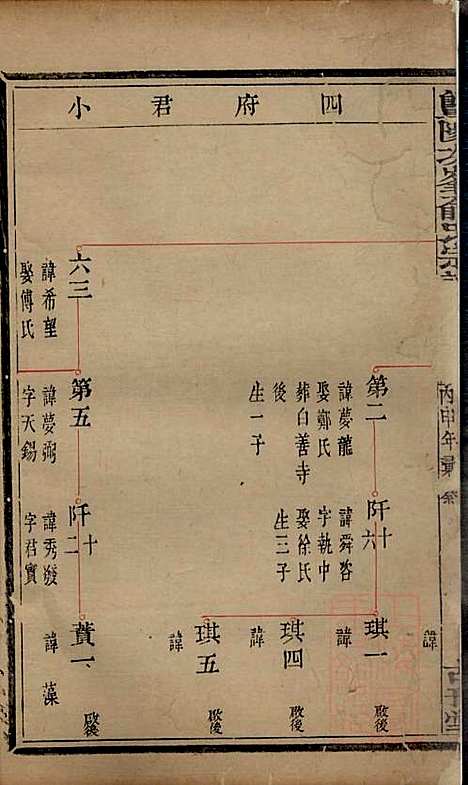 丙申年彙
四府君小
諱
第二
諱夢龍
娶鄭氏
葬白善寺
後
生一子
阡十六
諱舜咨
字執中
娶徐氏
生三子
琪一
諱
啟後
琪四
諱
啟後
琪五
諱
啟後
六三
諱希望
娶傅氏
第五
諱夢弼
字天錫
阡十二
諱秀發
字君實
蕡一
諱藻
啟後